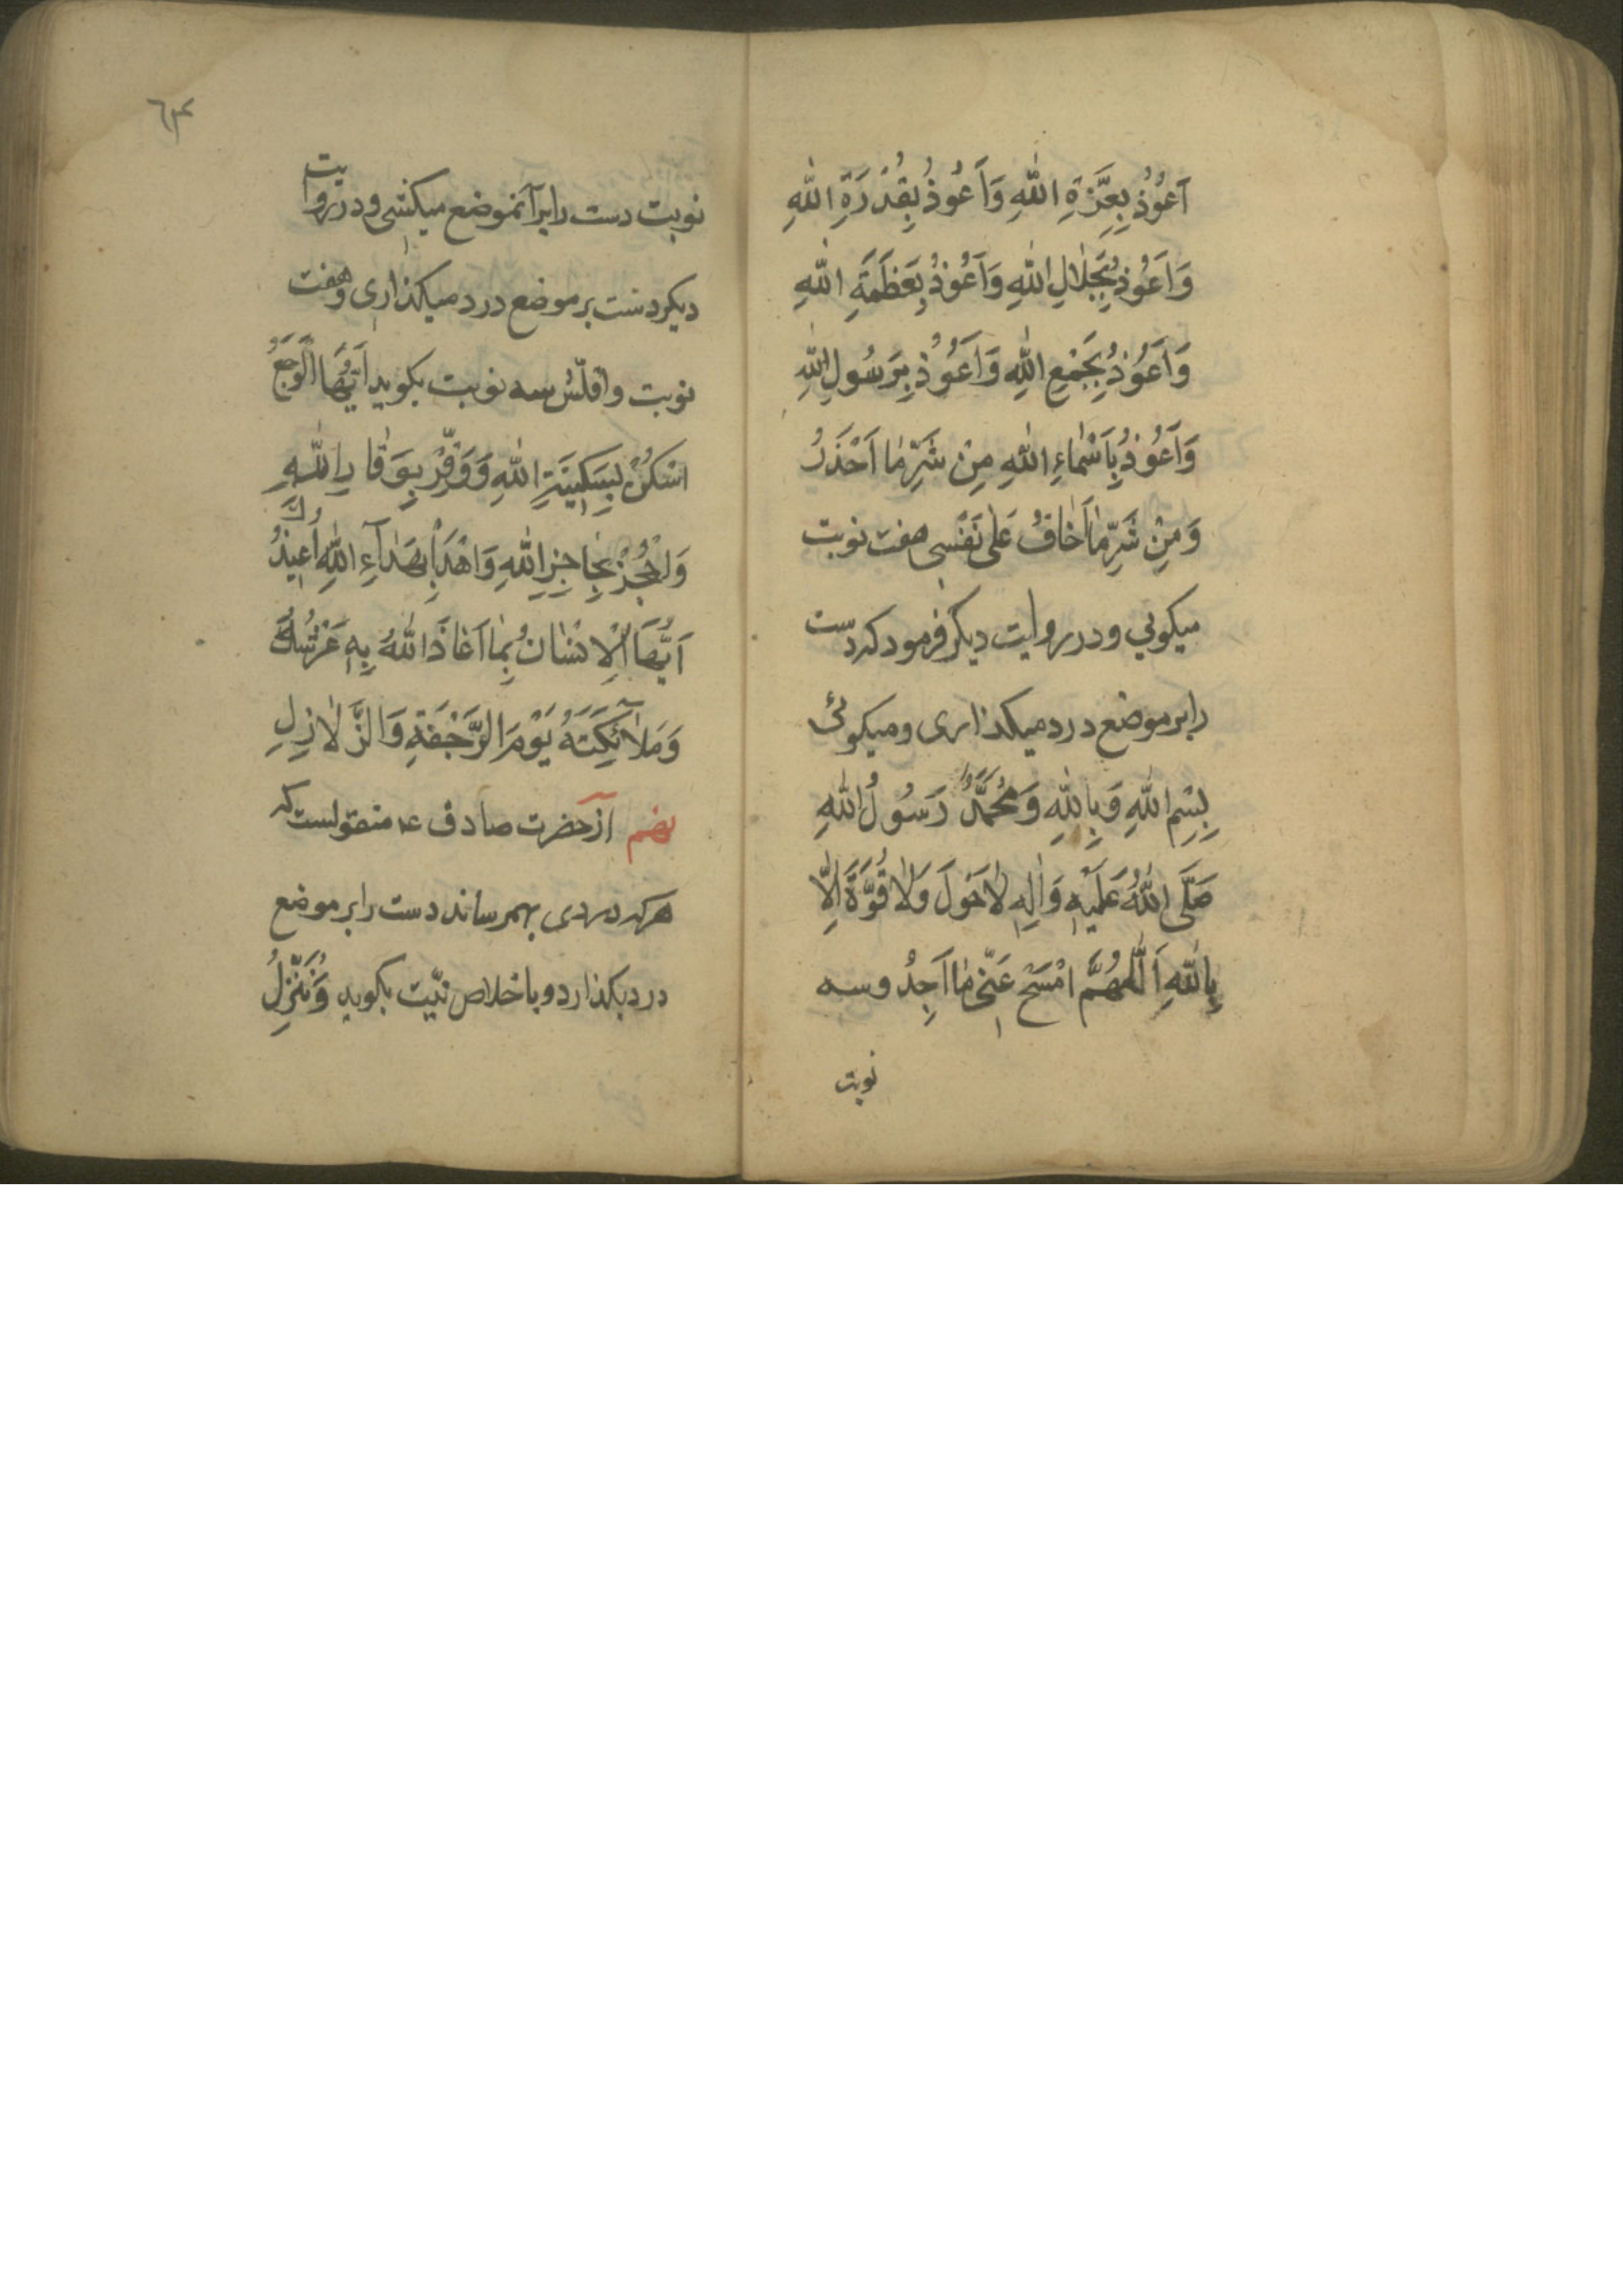 اَعُوُذُ بِعِزَّةِ اللّٰهِ وَاَعُوُذُ بِقُدْرَةِ اللّٰهِ
وَاَعُوُذُ بِجَلٰالِ اللّٰهِ وَاَعُوُذُ بِعَظَمَةِ اللّٰهِ
وَاَعُوُذُ بِجَمْعِ اللّٰهِ وَاَعُوُذُ بِرَسُولِ اللّٰهِ
وَاَعُوُذُ بِاَسْمٰاءِ اللّٰهِ مِنْ شَرِّ مٰا اَحْذَرُ
وَمِنْ شَرِّ مٰا اَخٰافُ عَلٰى نَفْسِى هفت نوبت
ميكوئى و در روايت ديكر فرمود كه دست
را بر موضع درد ميكذارى و ميكوئى
بِسْمِ اللّٰهِ وَبِاللّٰهِ وَمُحَمَّدٌ رَسُولُ اللّٰهِ
صَلَّى اللّٰهُ عَلَيْهِ وَاٰلِهِ لاٰحَوْلَ وَلاٰ قُوَّةَ اِلّٰا
بِاللّٰهِ اَللّٰهُمَّ امْسَحْ عَنّى مٰا اَجِدُ و سه
نوبت
٦٣
نوبت دست را بر آنموضع ميكشى و در روايت
ديكر دست بر موضع درد ميكذارى و هفت
نوبت و اقلّش سه نوبت بكويد اَيُّهَا الْوَجَعُ
اسْكُنْ بِسَكِينَةِ اللّٰهِ وَوَقِّرْ بِوَقٰارِ اللّٰهِ
وَاحْجُزْ بِحٰاجِزِ اللّٰهِ وَاهْدَأْ بِهَدٰآءِ اللّٰهِ اُعِيذُكَ
اَيُّهَا الْاِنْسٰانُ بِمٰا اَعٰاذَ اللّٰهُ بِهِ عَرْشَهُ
وَمَلاٰئِكَتَهُ يَوْمَ الرَّجْفَةِ وَالزَّلاٰزِلِ
نهم از حضرت صادق ع منقولست كه
هركه دردى بهمرساند دست را بر موضع
درد بكذارد و با خلاص نيّت بكويد وَنُنَزِّلُ